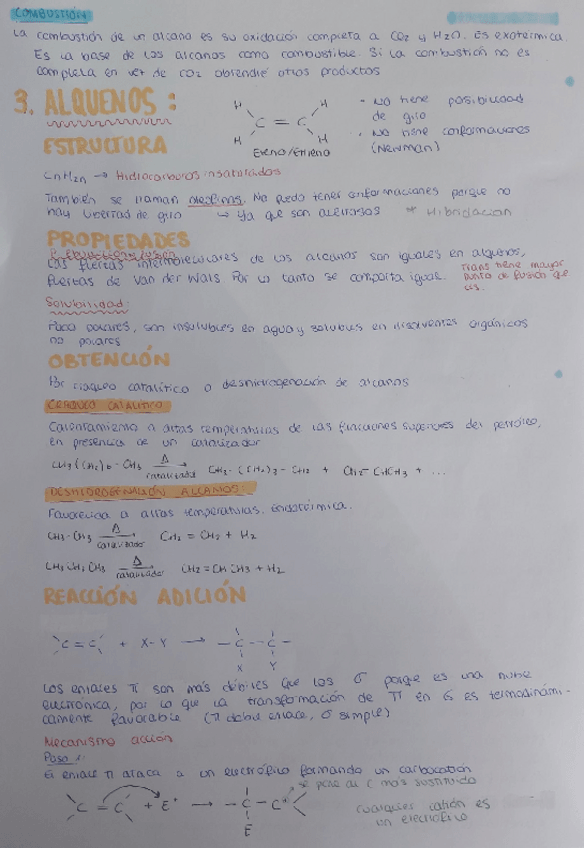 COMBUSTIÓN
La combustión de un alcano es su oxidación completa a CO2 y H2O. Es exotérmica.
Es la base de los alcanos como combustible. Si la combustión no es
completa en vez de CO2 obtendré otros productos
3. ALQUENOS:
H H
C = C
H H
Eteno/Etileno
- No tiene posibilidad
de giro
- No tiene conformaciones
(Newman)
ESTRUCTURA
CnH2n → Hidrocarburos insaturados
También se llaman olefinas. No puedo tener conformaciones porque no
hay libertad de giro → ya que son
Hibridación
PROPIEDADES
P. ebullición y fusión
Las fuerzas intermoleculares de los alcanos son iguales en alquenos,
fuerzas de Van der Wals Por lo tanto se comporta igual.
Trans tiene mayor
punto de fusión que
cis.
Solubilidad:
Poco polares, son insolubles en agua y solubles en disolventes orgánicos
no polares
OBTENCIÓN
Por craqueo catalítico o deshidrogenación de alcanos
CRAQUEO CATALÍTICO
Calentamiento a altas temperaturas de las fracciones superiores del petróleo,
en presencia de un catalizador
CH3(CH2)6-CH3 Δ catalizador CH3-(CH2)3-CH3 + CH2=CHCH3 + ...
DESHIDROGENACIÓN ALCANOS:
Favorecida a altas temperaturas. Endotérmica.
CH3-CH3 Δ catalizador CH2 = CH2 + H2
CH3CH2CH3 Δ catalizador CH2=CHCH3 + H2
REACCIÓN ADICIÓN
C = C + X-Y → -C-C-
X Y
Los enlaces π son más débiles que los σ porque es una nube
electrónica, por lo que la transformación de π en σ es termodinámi-
camente favorable (π doble enlace, σ simple)
Mecanismo acción
Paso 1:
El enlace π ataca a un electrófilo formando un carbocatión
se pone al C más sustituido
C = C + E+ → -C-C+
E
cualquier catión es
un electrófilo